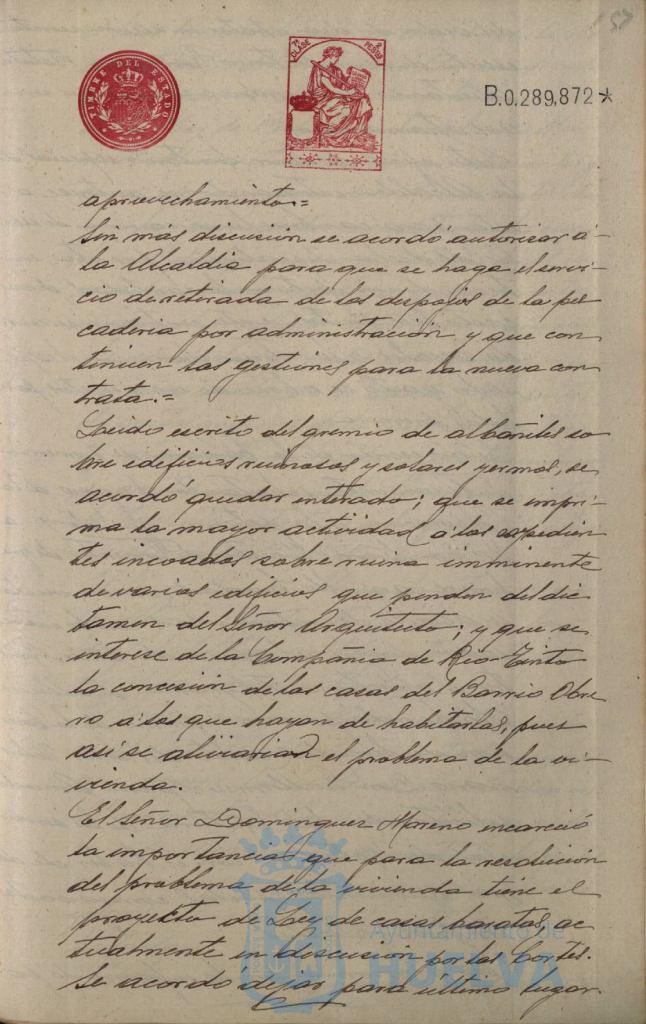 TIMBRE DEL ESTADO
1ª CLASE 2 PESOS
B.0.289,872*
aprovechamiento.=
Sin más discusión se acordó autorizar á
la Alcaldia para que se haga el servi-
cio de retirada de los despojos de la pes
caderia por administración y que con
tinuen las gestiones para la nueva con
trata.=
Leido escrito del gremio de albañiles so
bre edificios ruinosos y solares yermos, se
acordó quedar enterado; que se impri-
ma la mayor actividad á los expedien
tes incoados sobre ruina imminente
de varios edificios que penden del dic
tamen del Señor Arquitecto; y que se
interese de la Compañia de Rio-Tinto
la concesión de las casas del Barrio Obre
ro a los que hayan de habitarlas, pues
asi se aliviaria el problema de la vi-
vienda.
El Señor Dominguez Moreno encareció
la importancia que para la resolución
del problema de la vivienda tiene el
proyecto de Ley de casas baratas, ac
tualmente en discusión por las Cortes.
Se acordó dejar para último lugar
Ayuntamiento de
HUELVA